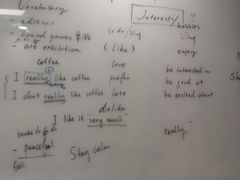 Vocabulary
- editors
- board games
- art exhibition
Interests
hobbies
to do / Ving
Ving
(like?)
enjoy
coffee
love
I really like coffee
prefer
be interested in
be good at
I don't really like coffee
hate
be excited about
dislike
I like it "very much"
"really"
- peaceful
Stay calm
feel